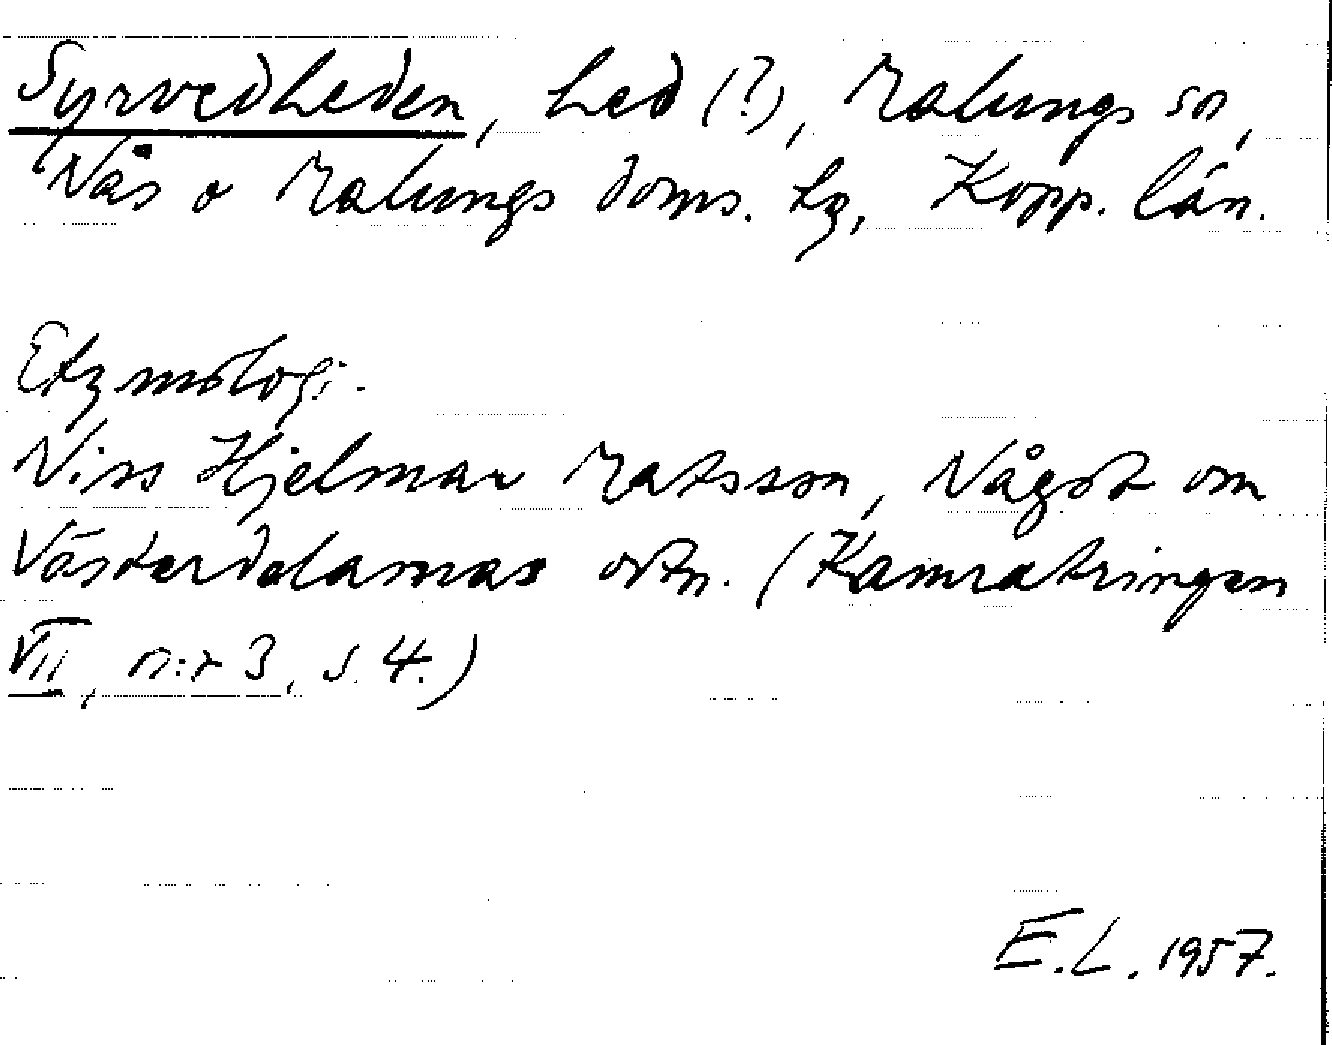 Syrvedheden, hed (?), Malungs sn,
Nås o Malungs doms. hg, Kopp. län.
Etymologi.
Niss Hjelmar Matsson, Något om
Västerdalarnas ortn. (Kamratringen
VII, n:r 3, s. 4.)
E.L. 1957.